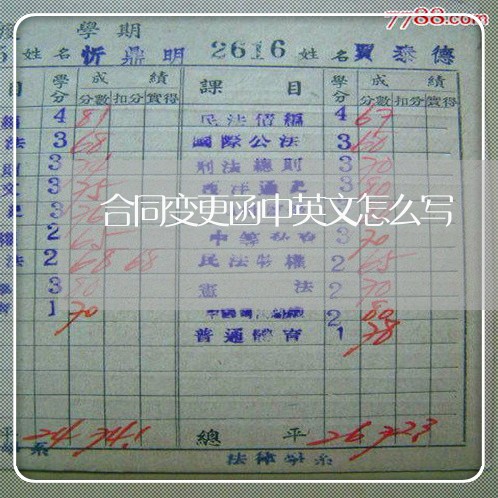 7788.com
學期
5 姓名 忻鼎明 2616 姓名 賈泰德
目 學分 成績 課目 學分 成績
分數 扣分 實得 分數 扣分 實得
4 81 民法債編 4 67
法 3 68 國際公法 3 60
3 刑法總則 3 70
文 3 75 西洋通史 3 80
3
合同变更函中英文怎么写
2 65 3 70
法 2 68 68 民法物權 2 65
3 80 憲法 2 70
育 1 70 2 80
普通體育 1 78
平 24 74.1 總平 26 72.3
系 法律學系